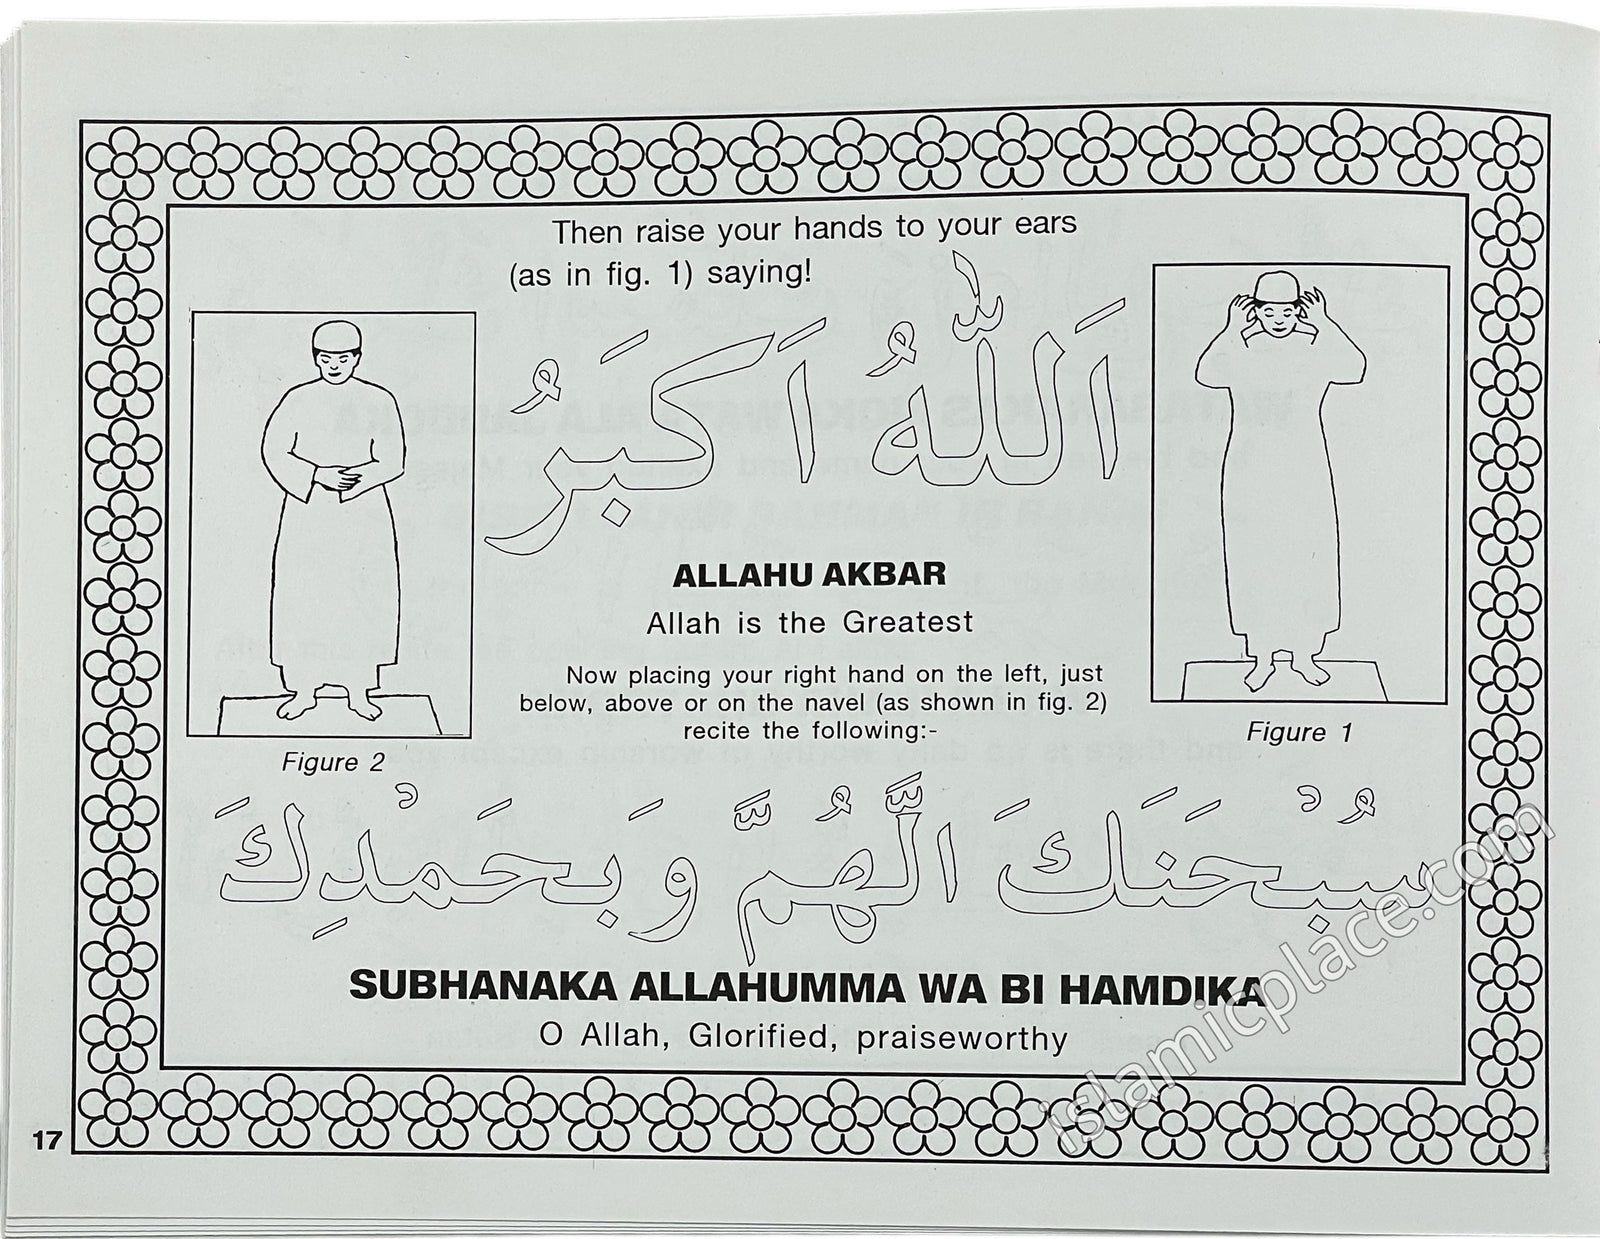 Then raise your hands to your ears
(as in fig. 1) saying!
اَللّٰهُ اَكْبَرُ
ALLAHU AKBAR
Allah is the Greatest
Now placing your right hand on the left, just
below, above or on the navel (as shown in fig. 2)
recite the following:-
Figure 2
Figure 1
سُبْحَنَكَ الَّهُمَّ وَبَحَمْدِكَ
SUBHANAKA ALLAHUMMA WA BI HAMDIKA
O Allah, Glorified, praiseworthy
17
islamicplace.com